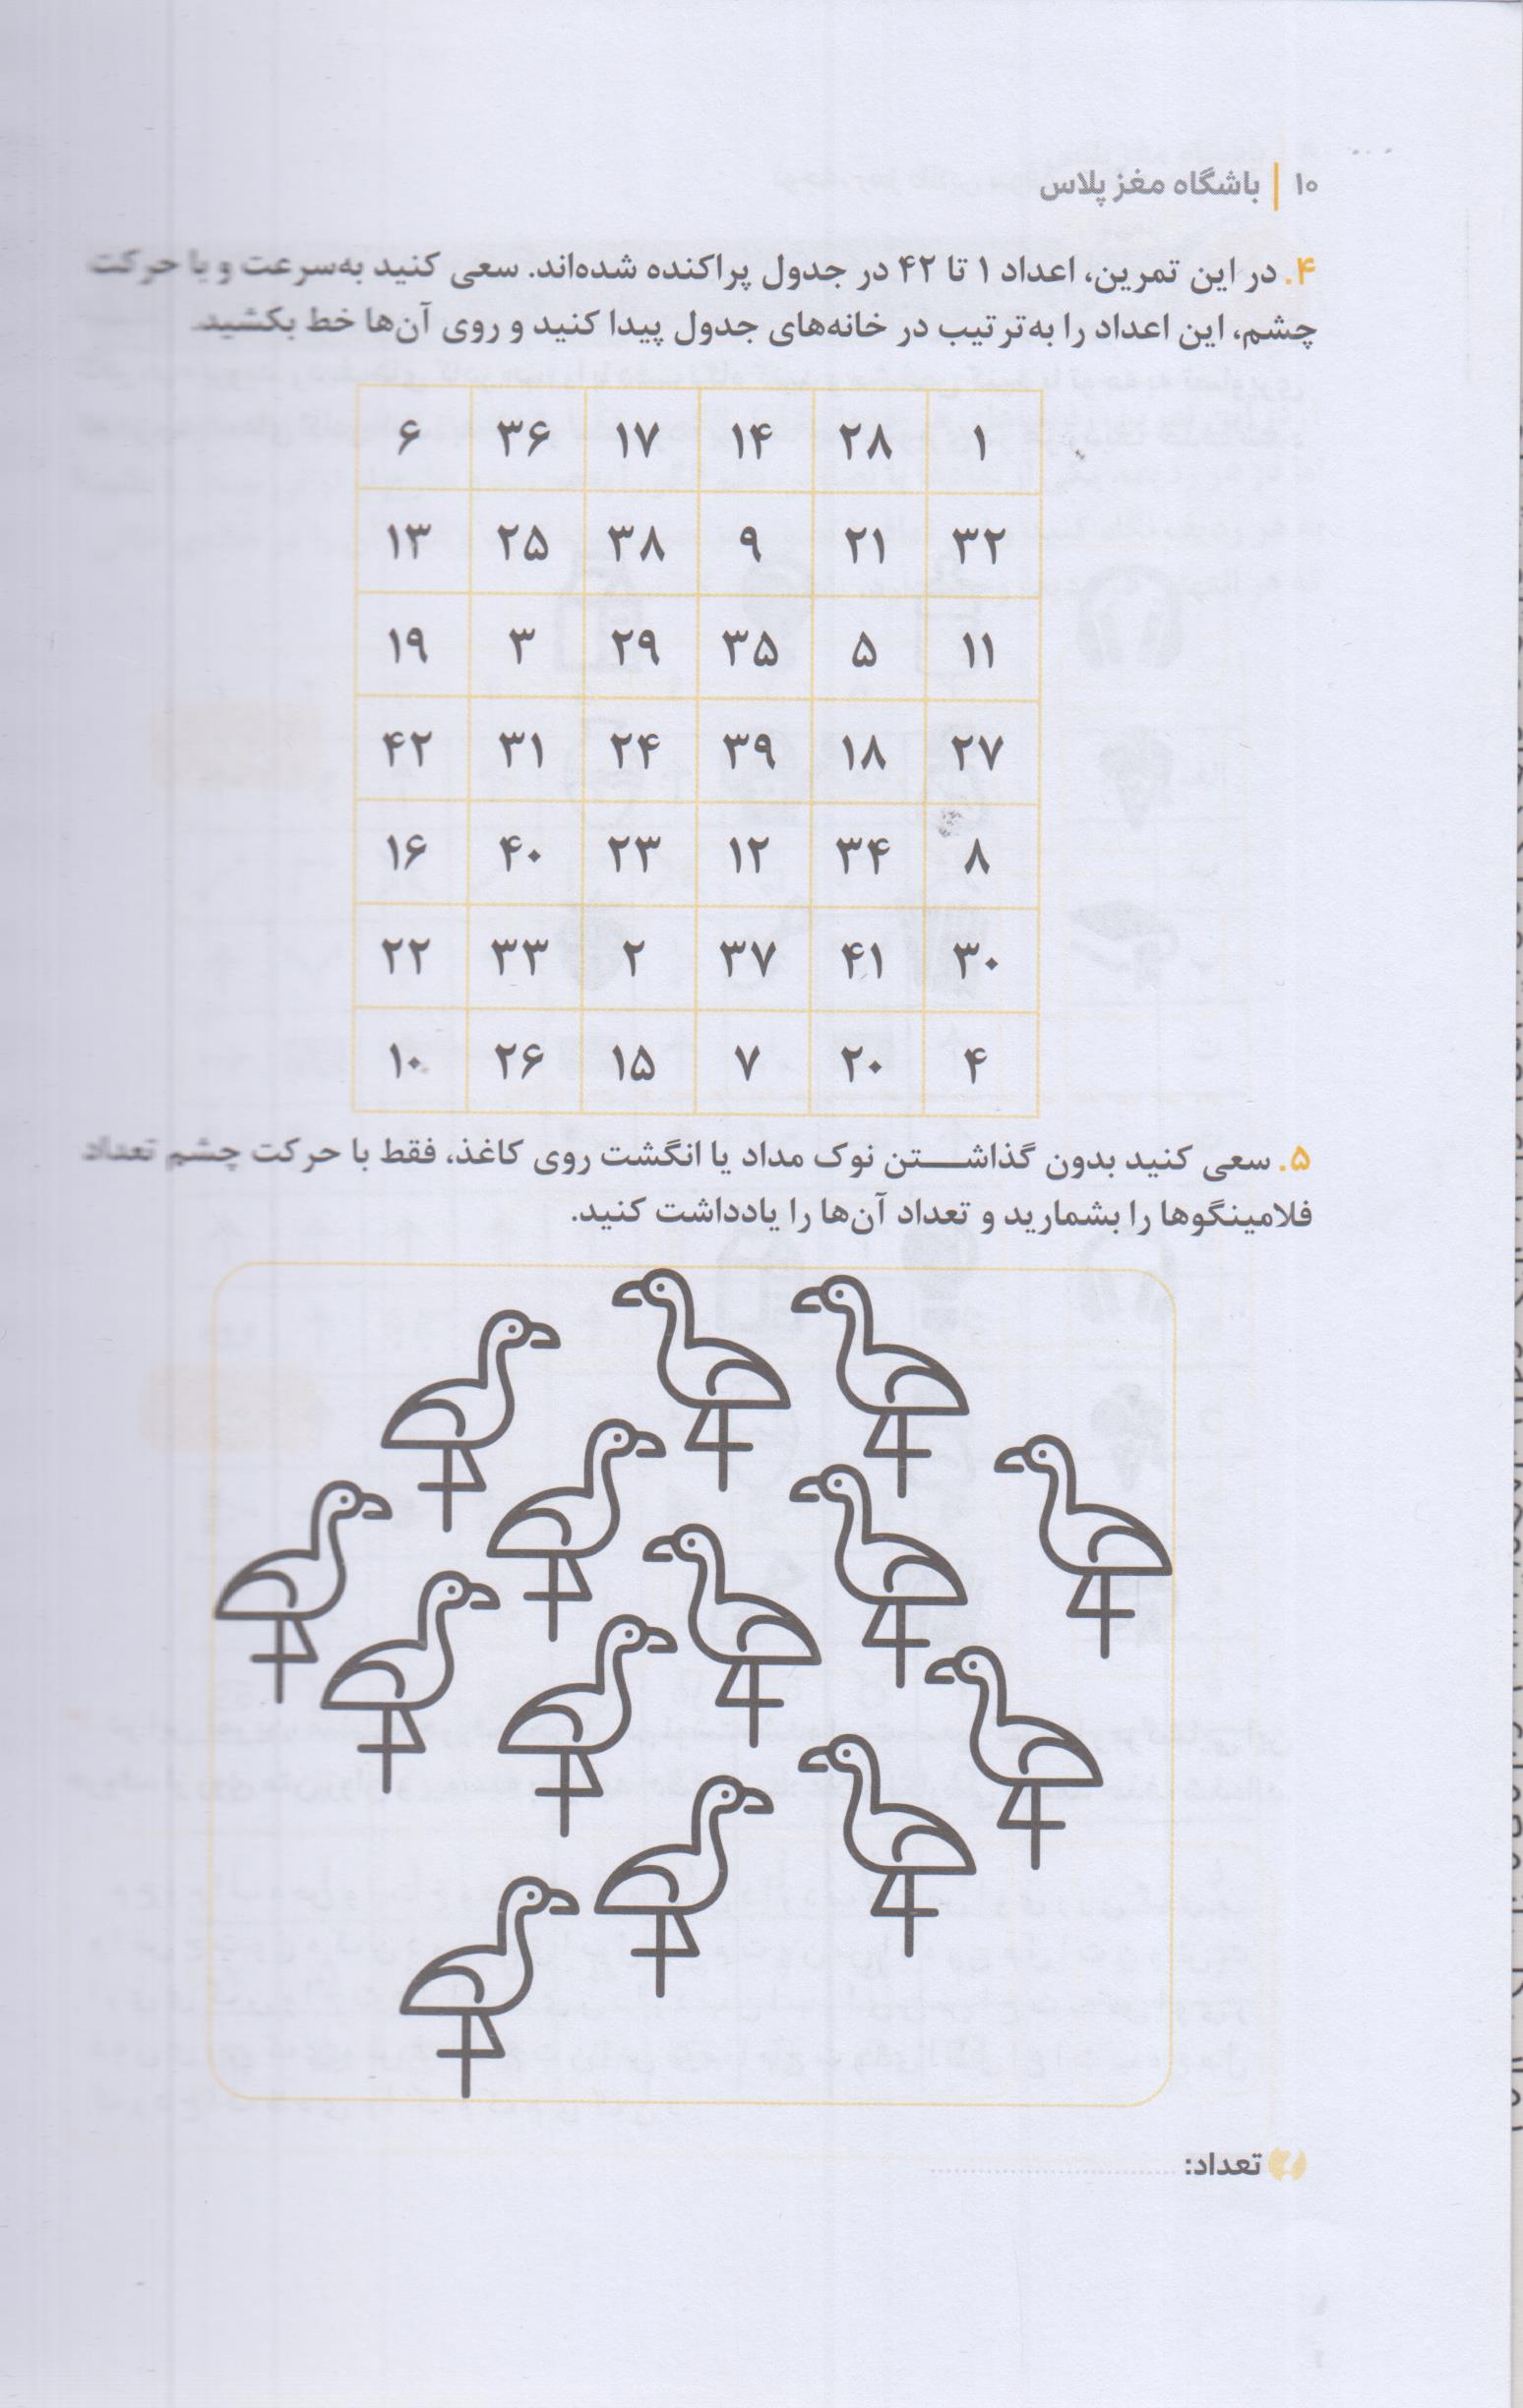 ۱۰ | باشگاه مغز پلاس
۴. در این تمرین، اعداد ۱ تا ۴۲ در جدول پراکنده شده‌اند. سعی کنید به‌سرعت و با حرکت
چشم، این اعداد را به‌ترتیب در خانه‌های جدول پیدا کنید و روی آن‌ها خط بکشید.
۱ ۲۸ ۱۴ ۱۷ ۳۶ ۶
۳۲ ۲۱ ۹ ۳۸ ۲۵ ۱۳
۱۱ ۵ ۳۵ ۲۹ ۳ ۱۹
۲۷ ۱۸ ۳۹ ۲۴ ۳۱ ۴۲
۸ ۳۴ ۱۲ ۲۳ ۴۰ ۱۶
۳۰ ۴۱ ۳۷ ۲ ۳۳ ۲۲
۴ ۲۰ ۷ ۱۵ ۲۶ ۱۰
۵. سعی کنید بدون گذاشـــتن نوک مداد یا انگشت روی کاغذ، فقط با حرکت چشم تعداد
فلامینگوها را بشمارید و تعداد آن‌ها را یادداشت کنید.
تعداد: ..............................